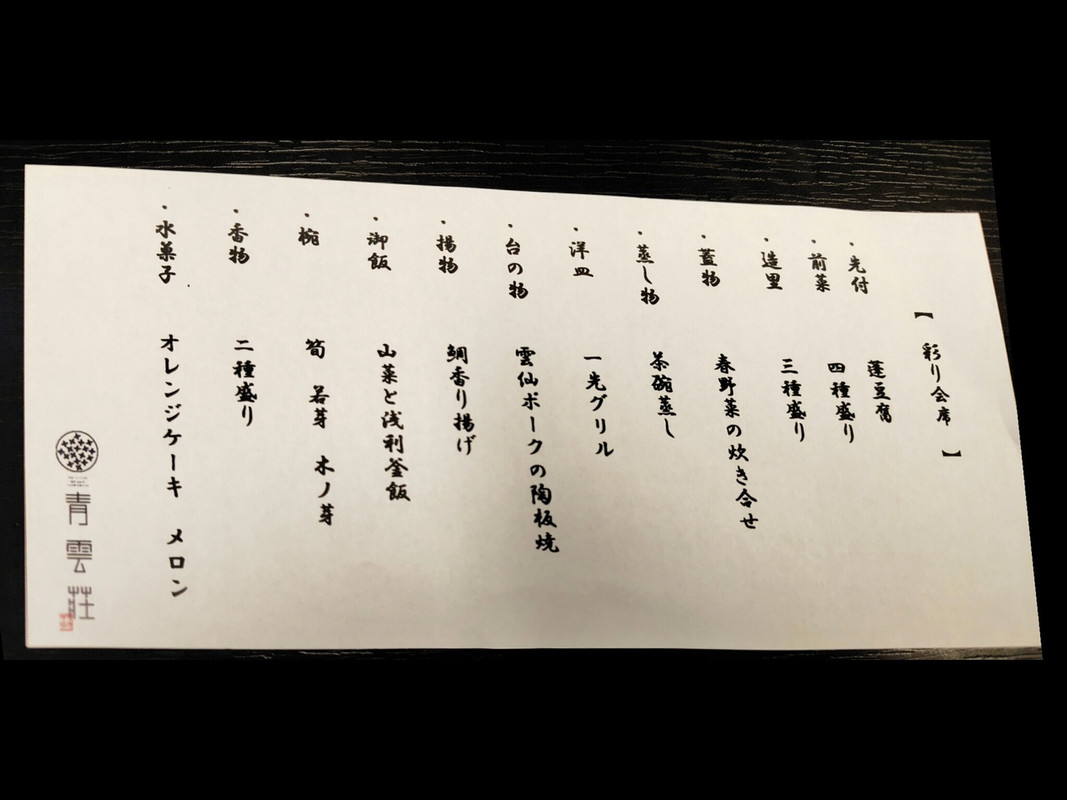 【彩り会席】
・先付 蓬豆腐
・前菜 四種盛り
・造里 三種盛り
・蓋物 春野菜の炊き合せ
・蒸し物 茶碗蒸し
・洋皿 一光グリル
・台の物 雲仙ポークの陶板焼
・揚物 鯛香り揚げ
・御飯 山菜と浅利釜飯
・椀 筍 若芽 木ノ芽
・香物 二種盛り
・水菓子 オレンジケーキ メロン
青雲荘